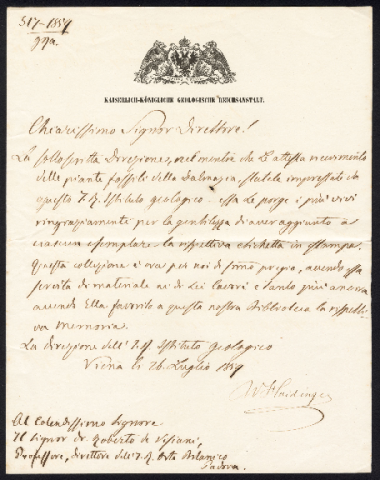 317-1859
KAISERLICH-KÖNIGLICHE GEOLOGISCHE REICHSANSTALT.
Chiarissimo Signor Direttore!
La sottoscritta Direzione, nel mentre che L'attesta ricevimento
delle piante fossili della Dalmazia, statele imprestate da
questo I. R. Istituto geologico essa Le porge i più vivi
ringraziamenti per la gentilezza di aver aggiunto a
ciascun esemplare la rispettiva etichetta in stampa.
Questa collezione è ora per noi di sommo pregio, avendo essa
servito di materiale ai di Lei lavori e tanto più ancora
avendo Ella favorito a questa nostra Biblioteca la rispetti-
va memoria.
La direzione dell' I. R. Istituto geologico
Viena li 26 Luglio 1859
W Haidinger
Al Colendissimo Signore
Il Signor Dr. Roberto de Visiani,
Professore, direttore dell' I. R. Orto Botanico
Padova.